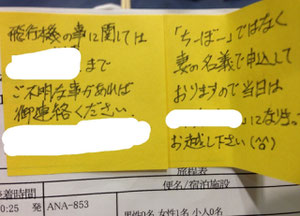 飛行機の事に関しては
まで
ご不明な事があれば
御連絡ください。
「ちーぼー」ではなく
妻の名義で申込して
おりますので当日は
になりきって
お越し下さい(^^)
着時間
便名/宿泊施設
0:25 発 ANA-853
男性0名 女性1名 小人0名